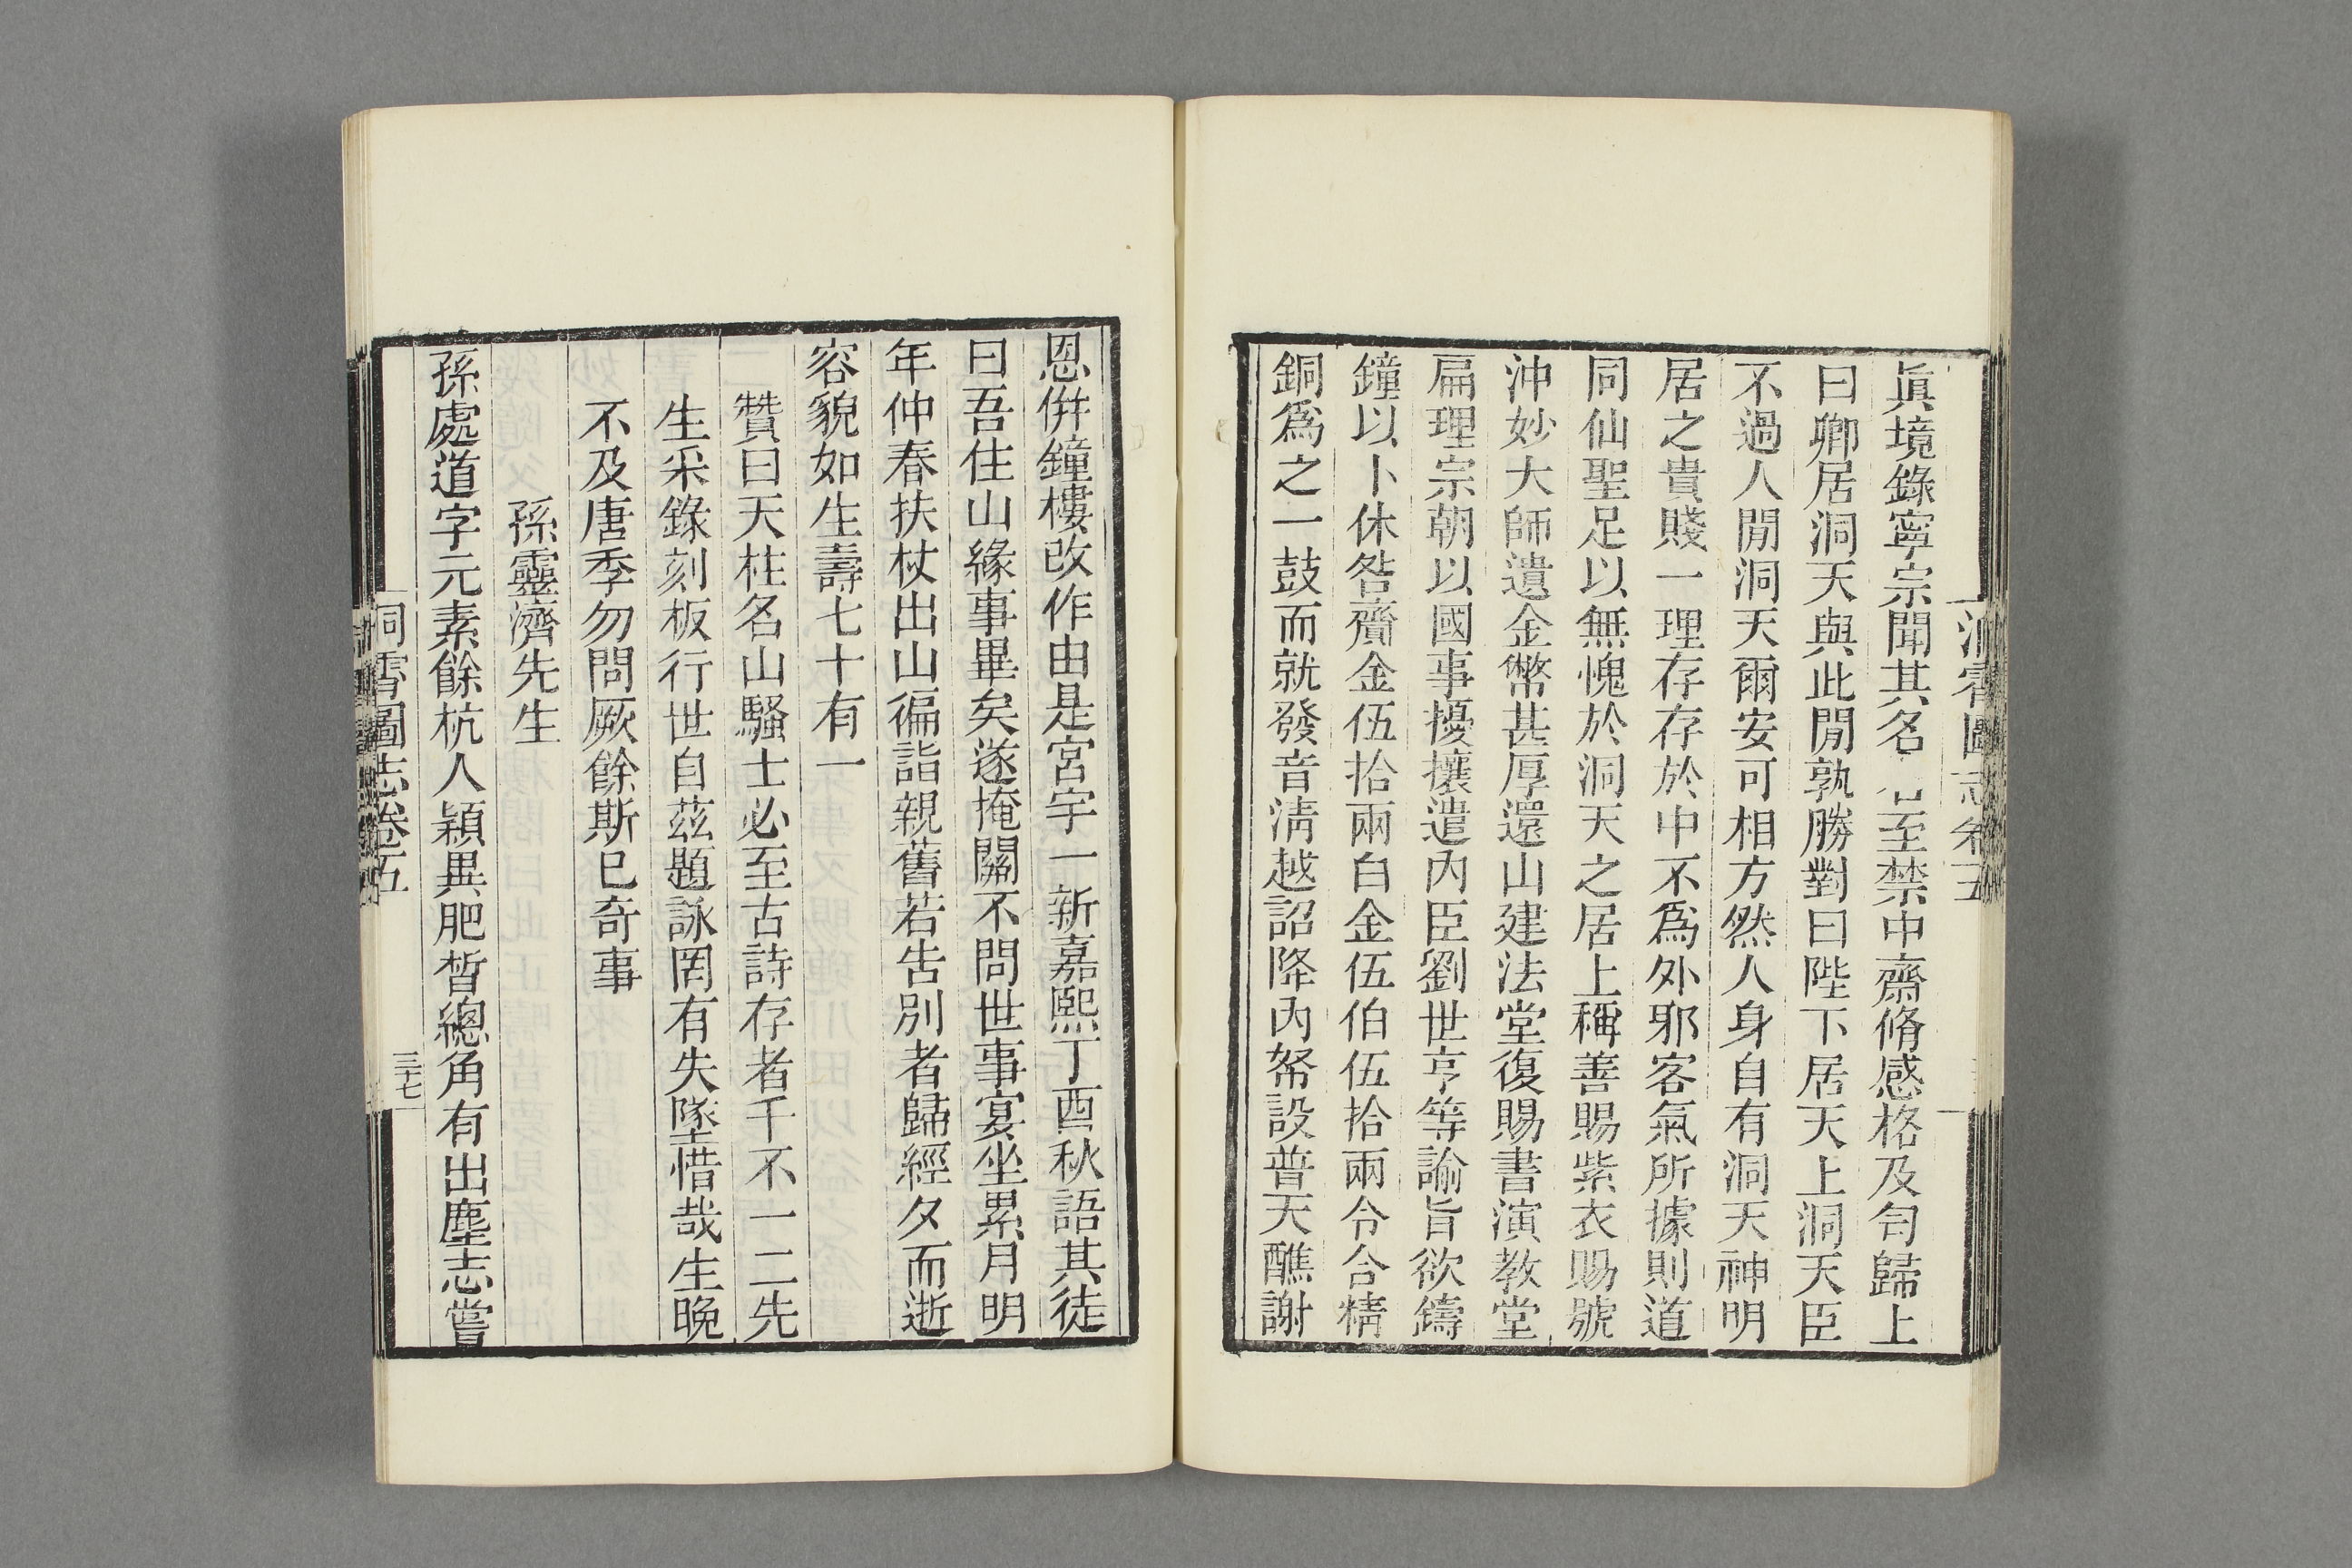 眞境錄寧宗聞其名召至禁中齋脩感格及匄歸上
曰卿居洞天與此閒孰勝對曰陛下居天上洞天臣
不過人閒洞天爾安可相方然人身自有洞天神明
居之貴賤一理存存於中不爲外邪客氣所據則道
同仙聖足以無愧於洞天之居上稱善賜紫衣賜號
沖妙大師遺金幣甚厚還山建法堂復賜書演教堂
扁理宗朝以國事擾攘遣內臣劉世亨等諭旨欲鑄
鐘以卜休咎齎金伍拾兩白金伍伯伍拾兩令合精
銅爲之一鼓而就發音淸越詔降內帑設普天醮謝
恩倂鐘樓改作由是宮宇一新嘉熙丁酉秋語其徒
曰吾住山緣事畢矣遂掩關不問世事宴坐累月明
年仲春扶杖出山徧詣親舊若告別者歸經夕而逝
容貌如生壽七十有一
贊曰天柱名山騷士必至古詩存者千不一二先
生采錄刻板行世自茲題詠罔有失墜惜哉生晚
不及唐季勿問厥餘斯已奇事
孫靈濟先生
孫處道字元素餘杭人穎異肥晳總角有出塵志嘗
洞霄圖志卷五
三十七